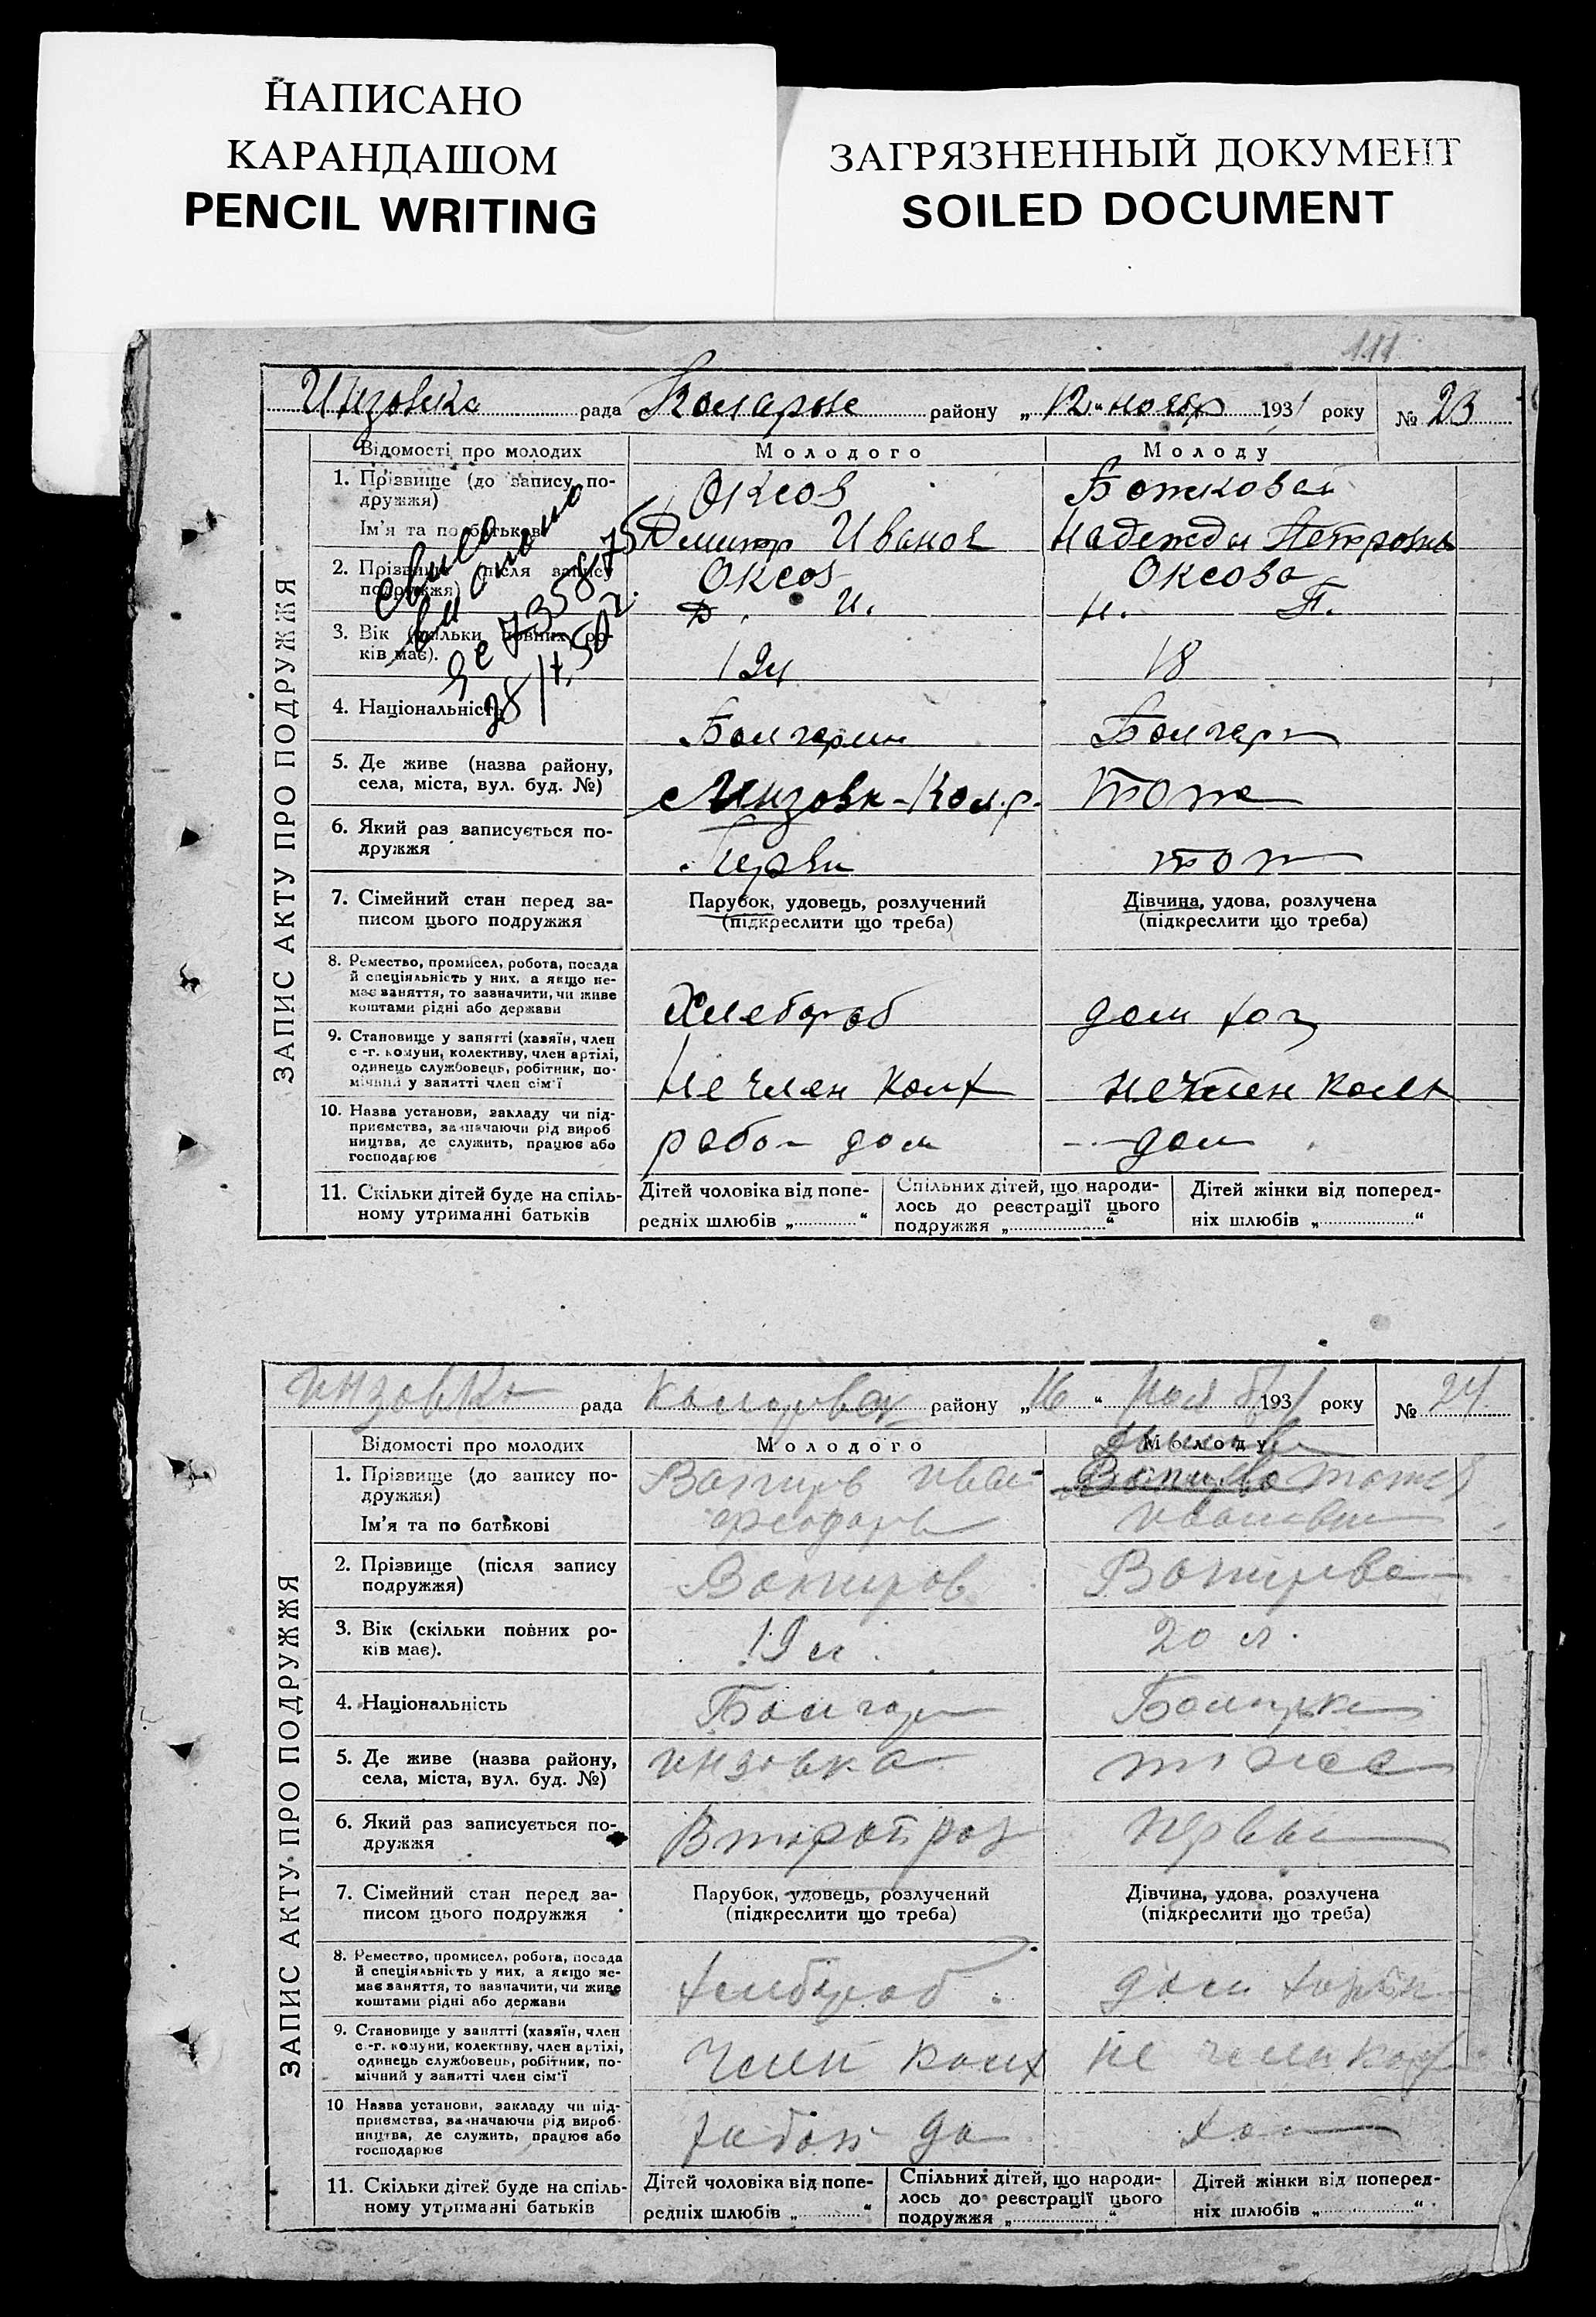 НАПИСАНО
КАРАНДАШОМ
PENCIL WRITING
ЗАГРЯЗНЕННЫЙ ДОКУМЕНТ
SOILED DOCUMENT
111
ЗАПИС АКТУ ПРО ПОДРУЖЖЯ
Инзовка рада району „12“ ноябр 1931 року № 23
Відомості про молодих Молодого Молоду
1. Прізвище (до запису по-
дружжя) Оксов Божковай
Ім'я та по батькові Дмитр Иванов Надежда Петровна
2. Прізвище (після запису
подружжя) Оксов Оксова
Д. И. Н. П.
3. Вік (скільки повних ро-
ків має). 24 18
28/
4. Національність Болгарин Болгар
5. Де живе (назва району,
села, міста, вул. буд. №) с Инзовк-Кол.р. тоже
6. Який раз записується по-
дружжя Перви тож
7. Сімейний стан перед за-
писом цього подружжя
Парубок, удовець, розлучений
(підкреслити що треба)
Дівчина, удова, розлучена
(підкреслити що треба)
8. Ремество, промисел, робота, посада
й спеціяльність у них, а якщо не-
має заняття, то зазначити, чи живе
коштами рідні або держави
Хлебороб дом хоз
9. Становище у занятті (хазяїн, член
с.-г. комуни, колективу, член артілі,
одинець службовець, робітник, по-
мічний у занятті член сім'ї
Не член колх не член колх
10. Назва установи, закладу чи під-
приємства, зазначаючи рід вироб
ництва, де служить, працює або
господарює
рабо- дом дом
11. Скільки дітей буде на спіль-
ному утриманні батьків
Дітей чоловіка від попе-
редніх шлюбів „............“
Спільних дітей, що народи-
лось до реєстрації цього
подружжя „............“
Дітей жінки від поперед-
ніх шлюбів „............“
ЗАПИС АКТУ ПРО ПОДРУЖЖЯ
Инзовка рада району „16“ 1931 року № 24
Відомості про молодих Молодого Молоду
1. Прізвище (до запису по-
дружжя) Иван
Ім'я та по батькові
2. Прізвище (після запису
подружжя)
3. Вік (скільки повних ро-
ків має). 19 л. 20 л.
4. Національність Болгар Болгарка
5. Де живе (назва району,
села, міста, вул. буд. №) Инзовка тоже
6. Який раз записується по-
дружжя Второй раз первы
7. Сімейний стан перед за-
писом цього подружжя
Парубок, удовець, розлучений
(підкреслити що треба)
Дівчина, удова, розлучена
(підкреслити що треба)
8. Ремество, промисел, робота, посада
й спеціяльність у них, а якщо не-
має заняття, то зазначити, чи живе
коштами рідні або держави
хлебороб дом
9. Становище у занятті (хазяїн, член
с.-г. комуни, колективу, член артілі,
одинець службовець, робітник, по-
мічний у занятті член сім'ї
член колх не член колх
10 Назва установи, закладу чи під-
приємства, зазначаючи рід вироб-
ництва, де служить, працює або
господарює
11. Скільки дітей буде на спіль-
ному утриманні батьків
Дітей чоловіка від попе-
редніх шлюбів „............“
Спільних дітей, що народи-
лось до реєстрації цього
подружжя „............“
Дітей жінки від поперед-
ніх шлюбів „............“